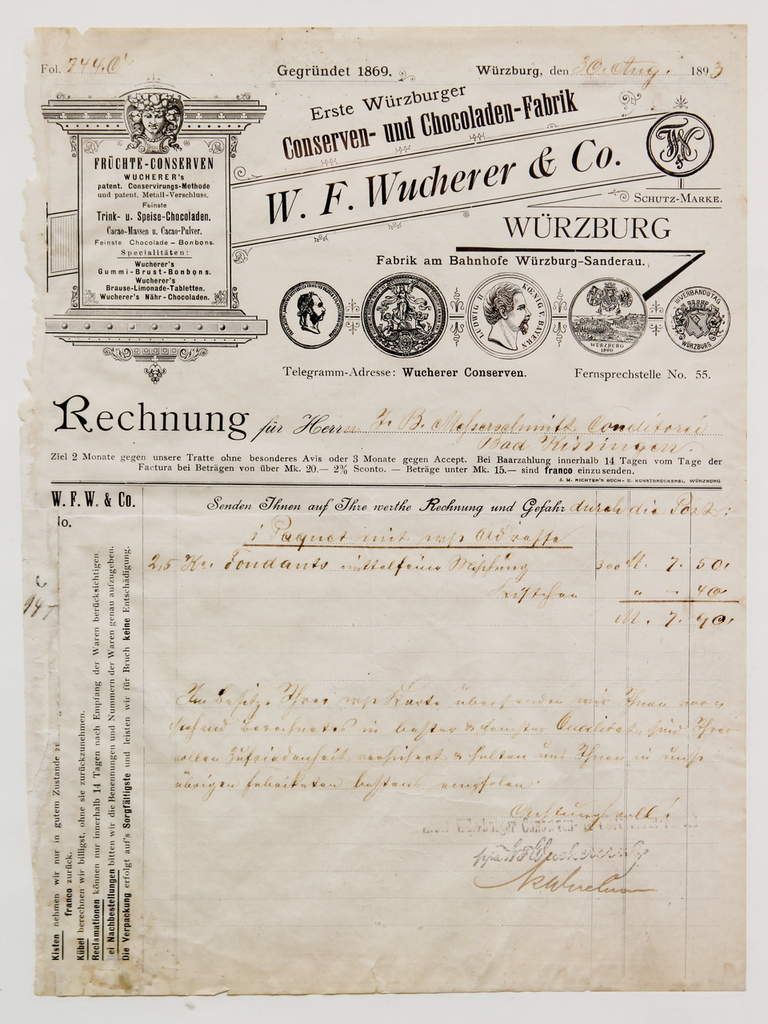 Fol. 744.
Gegründet 1869.
Würzburg, den 30. Aug. 1893
Erste Würzburger
Conserven- und Chocoladen-Fabrik
W. F. Wucherer & Co.
SCHUTZ-MARKE.
WÜRZBURG
Fabrik am Bahnhofe Würzburg-Sanderau.
FRÜCHTE-CONSERVEN
WUCHERER's
patent. Conservirungs-Methode
und patent. Metall-Verschluss.
Feinste
Trink- u. Speise-Chocoladen.
Cacao-Massen u. Cacao-Pulver.
Feinste Chocolade-Bonbons.
Specialitäten:
Wucherer's
Gummi-Brust-Bonbons.
Wucherer's
Brause-Limonade-Tabletten.
Wucherer's Nähr-Chocoladen.
LUDWIG II KOENIG V. BAYERN
WÜRZBURG
WÜRZBURG
Telegramm-Adresse: Wucherer Conserven.
Fernsprechstelle No. 55.
Rechnung für Herrn J. B. Messerschmitt Conditorei
Bad Kissingen.
Ziel 2 Monate gegen unsere Tratte ohne besonderes Avis oder 3 Monate gegen Accept. Bei Baarzahlung innerhalb 14 Tagen vom Tage der
Factura bei Beträgen von über Mk. 20.— 2% Sconto. — Beträge unter Mk. 15.— sind franco einzusenden.
W. F. W. & Co.
No.
Senden Ihnen auf Ihre werthe Rechnung und Gefahr durch die Post:
1 Paquet mit Adresse
2,5 Ko. Fondants mittelfeine Mischung 300 M. 7. 50
Kistchen " — 40
M. 7. 90
Im Besitze Ihrer Karte übersenden wir Ihnen vor-
stehend berechnetes in bester & Qualität, sind Ihrer
vollen Zufriedenheit versichert & halten uns Ihnen in
übrigen Fabrikaten bestens empfohlen.
Achtungsvoll!
Kisten nehmen wir nur in gutem Zustande
franco zurück.
Kübel berechnen wir billigst, ohne sie zurückzunehmen.
Reclamationen können nur innerhalb 14 Tagen nach Empfang der Waren berücksichtigen.
ei Nachbestellungen bitten wir die Benennungen und Nummern der Waren genau aufzugeben.
Die Verpackung erfolgt auf's Sorgfältigste und leisten wir für Bruch keine Entschädigung.